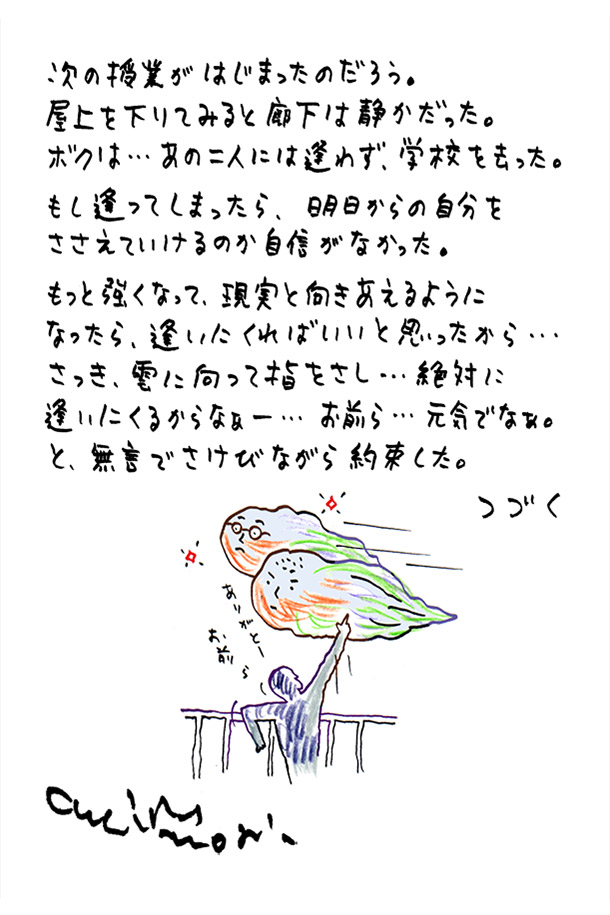 次の授業がはじまったのだろう。
屋上を下りてみると廊下は静かだった。
ボクは…あの二人には逢わず、学校を去った。
もし逢ってしまったら、明日からの自分を
ささえていけるのか自信がなかった。
もっと強くなって、現実と向きあえるように
なったら、逢いにくればいいと思ったから…
さっき、雲に向って指をさし…絶対に
逢いにくるからなぁー…お前ら…元気でなぁ。
と、無言でさけびながら約束した。
つづく
ありがとー
お前ら